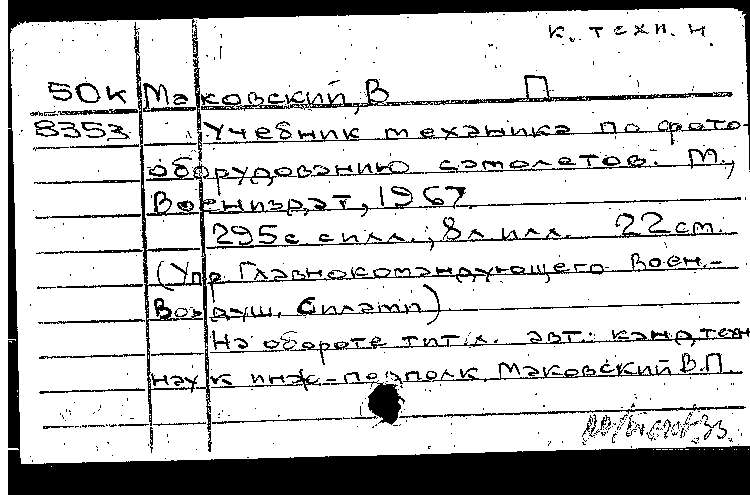 к. техн. н.
50к Маковский, В П
8353 Учебник механика по фото-
оборудованию самолетов. М.,
Воениздат, 1967.
295с с илл.; 8л илл. 22 см.
(Упр Главнокомандующего Воен.-
Воздуш. Силами)
На обороте тит.л. авт.: канд. техн
наук инж-подполк. Маковский В.П.